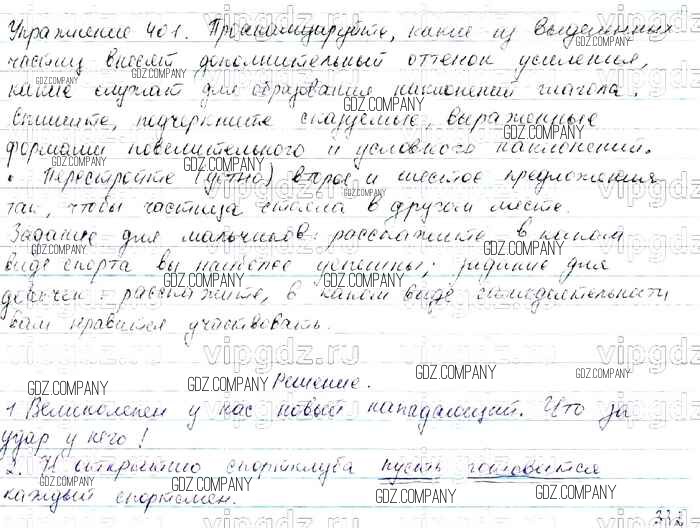 Упражнение 401. Проанализируйте, какие из выделенных
частиц вносят дополнительный оттенок усиления,
какие служат для образования наклонений глагола.
Спишите, подчеркните сказуемые, выраженные
формами повелительного и условного наклонений.
• Перестройте (устно) второе и шестое предложения
так, чтобы частица стояла в другом месте.
Задание для мальчиков: расскажите в каком
виде спорта вы наиболее успешны; задание для
девочек - расскажите, в каком виде самодеятельности
вам нравится участвовать.
Решение.
1 Великолепен у нас новый нападающий. Что за
удар у него!
2. К открытию спортклуба пусть готовится
каждый спортсмен.